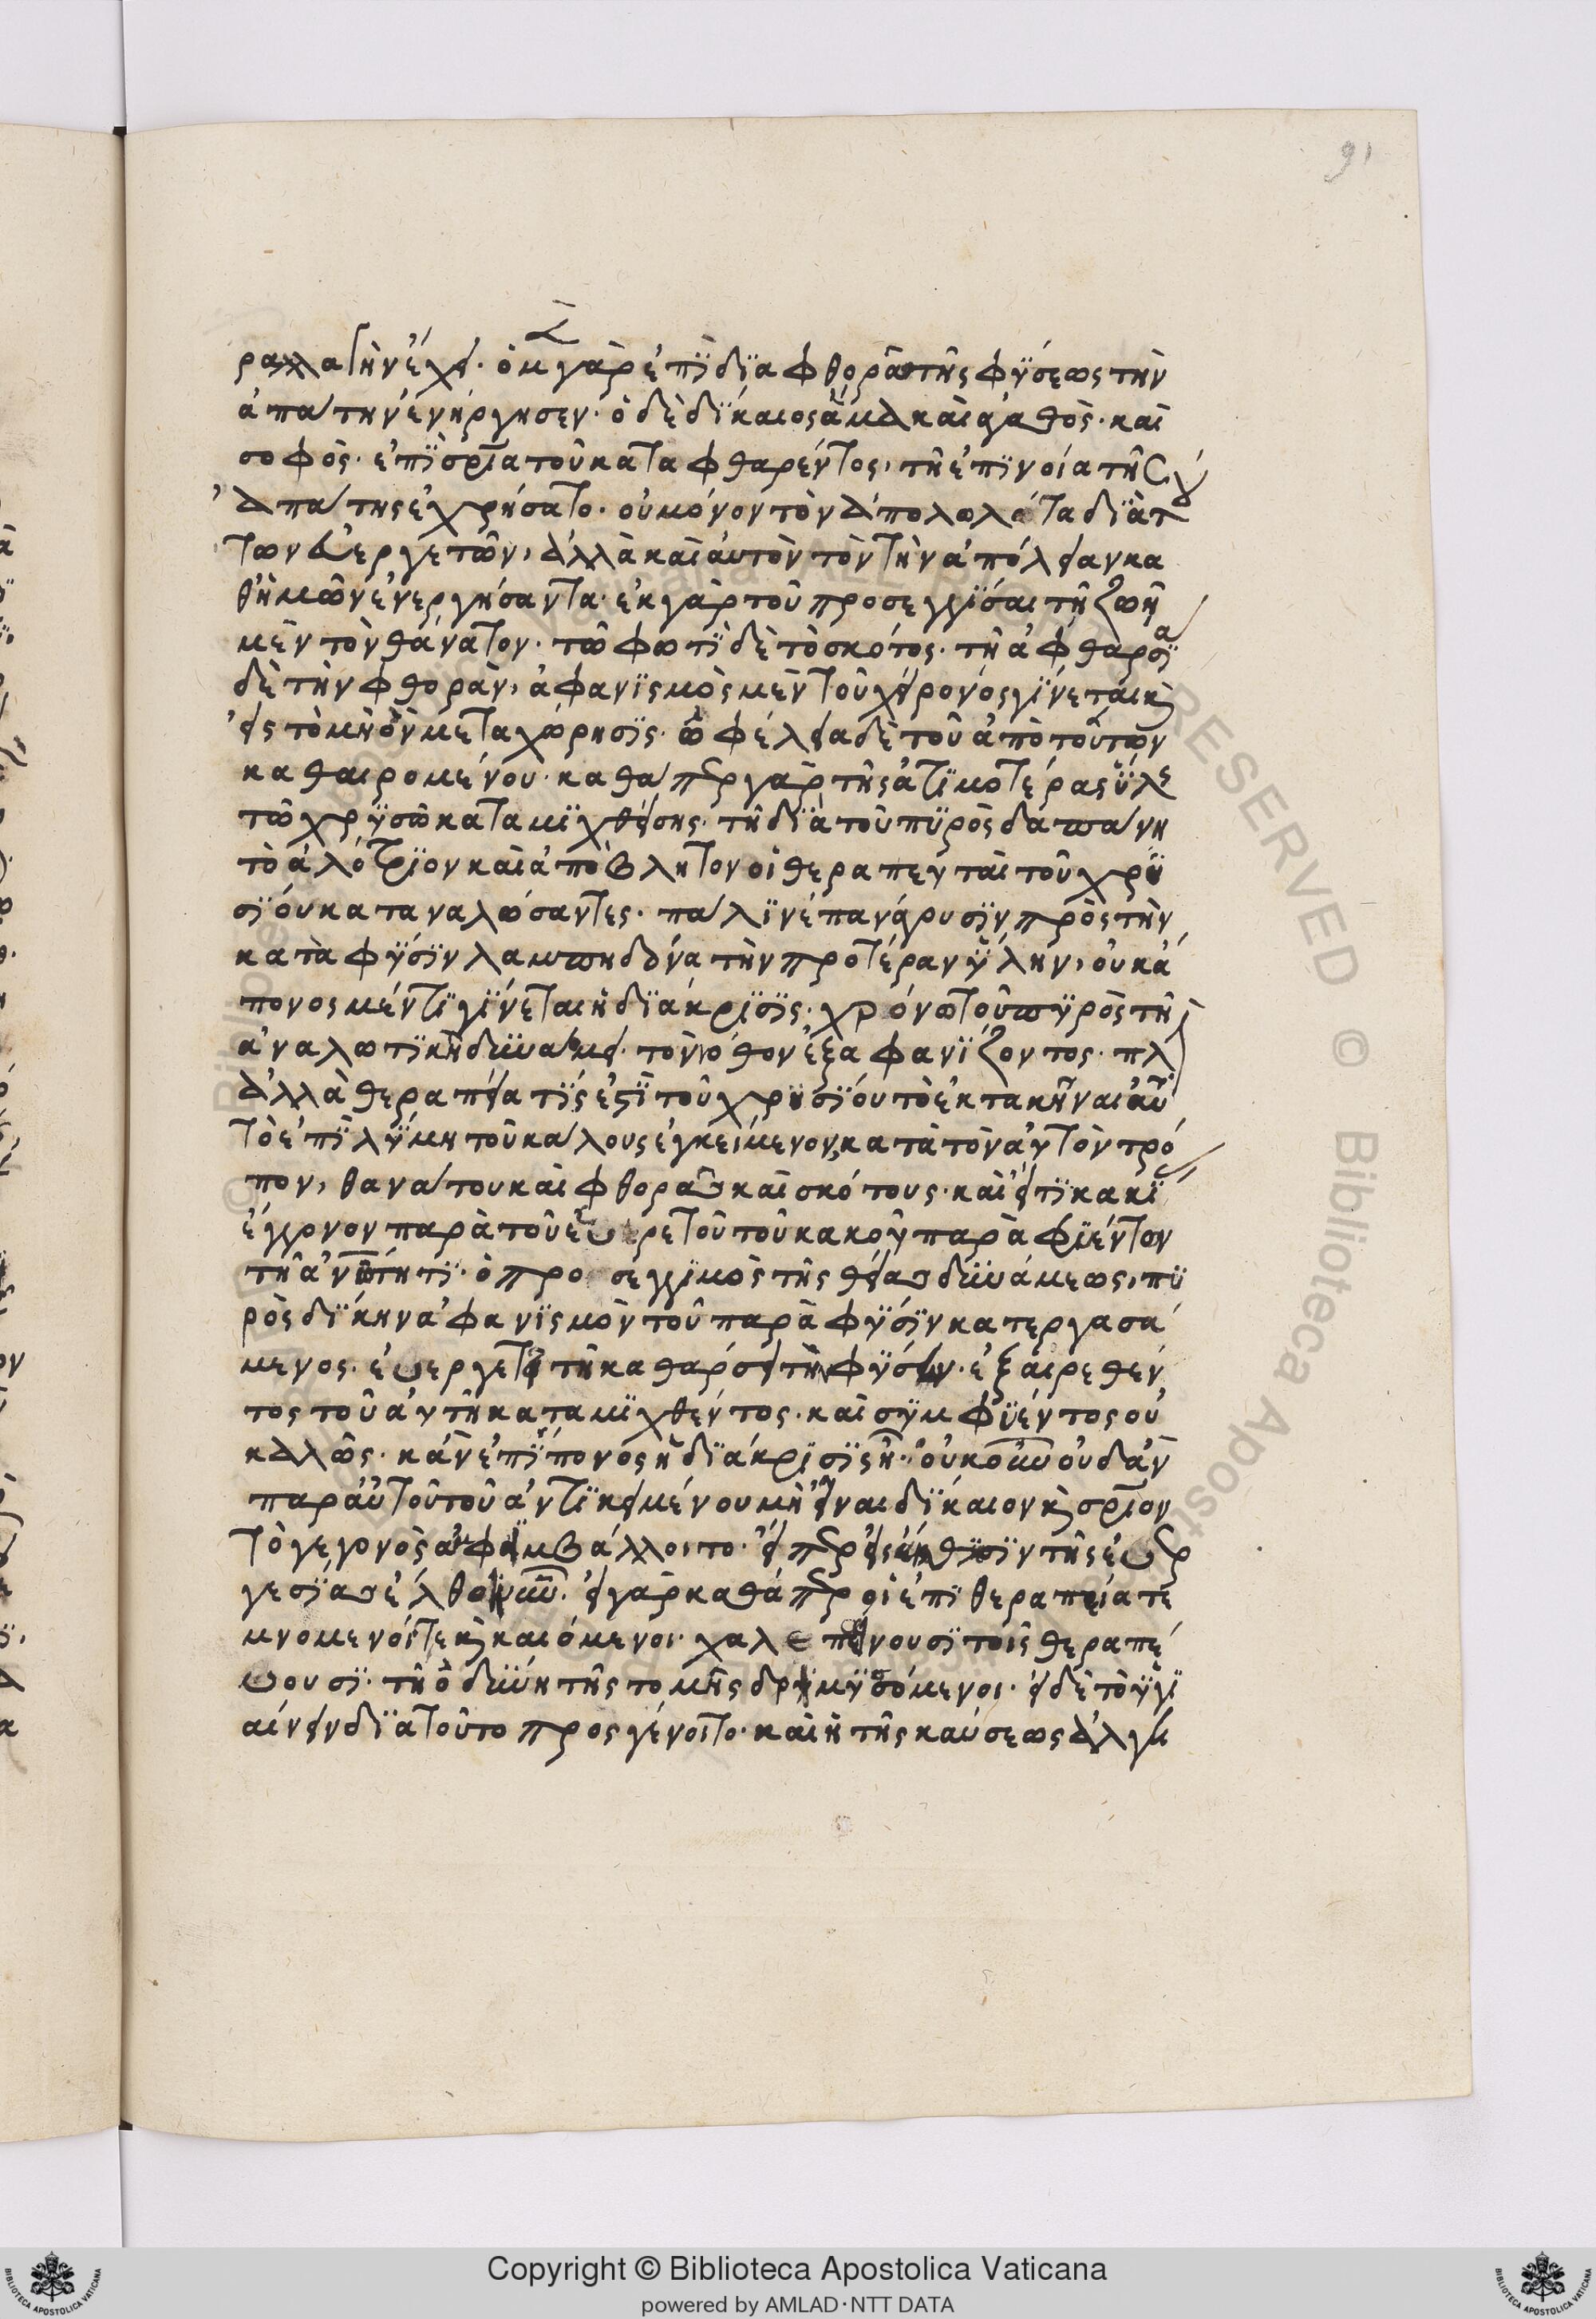 91
ραλλαγὴν ἔχει· ὁ μὲν γὰρ ἐπὶ διαφθορᾶ τῆς φύσεως τὴν
ἀπάτην ἐνήργησεν· ὁ δὲ δίκαιος ἅμα καὶ ἀγαθὸς· καὶ
σοφὸς· ἐπὶ σρία τοῦ καταφθαρέντος, τῆ ἐπινοία τῆς
ἀπάτης ἐχρήσατο· οὐ μόνον τὸν ἀπολωλότα διὰ τ
των εὐεργετῶν, ἀλλὰ καὶ αὐτὸν τὸν τὴν ἀπόλειαν κα
θἡμῶν ἐνεργήσαντα· ἐκ γὰρ τοῦ προσεγγίσαι τῆ ζωῆ
μὲν τὸν θάνατον· τῶ φωτὶ δὲ τὸ σκότος· τῆ ἀφθαρσία
δὲ τὴν φθορὰν, ἀφανισμὸς μὲν τοῦ χείρονός γίνεται κὶ
εἰς τὸ μὴ ὂν μεταχώρησις· ὠφέλεια δὲ τοῦ ἀπὸ τούτων
καθαιρομένου· καθάπερ γὰρ τῆς ἀτιμοτέρας ὕλης
τῶ χρυσῶ καταμιχθείσης· τῆ διὰ τοῦ πυρὸς δαπάνη
τὸ ἀλότριον καὶ ἀπόβλητον οἱ θεραπευταὶ τοῦ χρυ
σίου καταναλώσαντες· πάλιν ἐπανάγουσιν πρὸς τὴν
κατὰ φύσιν λαμπηδόνα τὴν προτέραν ὕλην, οὐκ ἄ
πονος μέντι γίνεται ἡ διάκρισις· χρόνω τοῦ πυρὸς τῆ
ἀναλωτικῆ δυνάμει· τὸ νόθον ἐξαφανίζοντος· πλ
ἀλλὰ θεραπεία τίς ἐστὶ τοῦ χρυσίου τὸ ἐκτακῆναι αὐ
τὸ ἐπὶ λύμη τοῦ κάλους ἐγκείμενον, κατὰ τὸν αὐτὸν τρό
πον, θανάτου καὶ φθορᾶς καὶ σκότους· καὶ εἴ τι κακί
ἔγγονον παρὰ τοῦ εὑρετοῦ τοῦ κακοῦ παρὰ φιέντων
ὁ προσεγγιμὸς τῆς θείας δυνάμεως, πυ
ρὸς δίκην ἀφανισμὸν τοῦ παρὰ φύσιν κατεργασά
μενος· εὐεργετεῖ τῆ καθάρσει τὴν φύσιν· ἐξαιρεθέν
τος τοῦ αὐτῆ καταμιχθέντος· καὶ συμφυέντος οὐ
καλῶς· κἂν ἐπίπονος ἡ διάκρισις ἦ· οὐκοῦν οὐδ' ἂν
παρ' αὐτοῦ τοῦ ἀντικειμένου μὴ εἶναι δίκαιον κὶ σρίον
τὸ γεγονὸς ἀμφιβάλλοιτο· εἴπερ εἰς αἴσθησιν τῆς εὐερ
γεσίας ἔλθοι νῦν· εἰ γὰρ καθάπερ οἱ ἐπὶ θεραπεία τε
μνομενοί τε κὶ καιόμενοι· χαλεπαίνουσι τοῖς θεραπεύ
ουσι· τῆ ὀδύνη τῆς τομῆς δριμυσσόμενοι· εἰ δὲ τὸ ὑγι
αίνειν διὰ τοῦτο προσγένοιτο· καὶ ἡ τῆς καύσεως ἀλγη
Copyright © Biblioteca Apostolica Vaticana
powered by AMLAD·NTT DATA